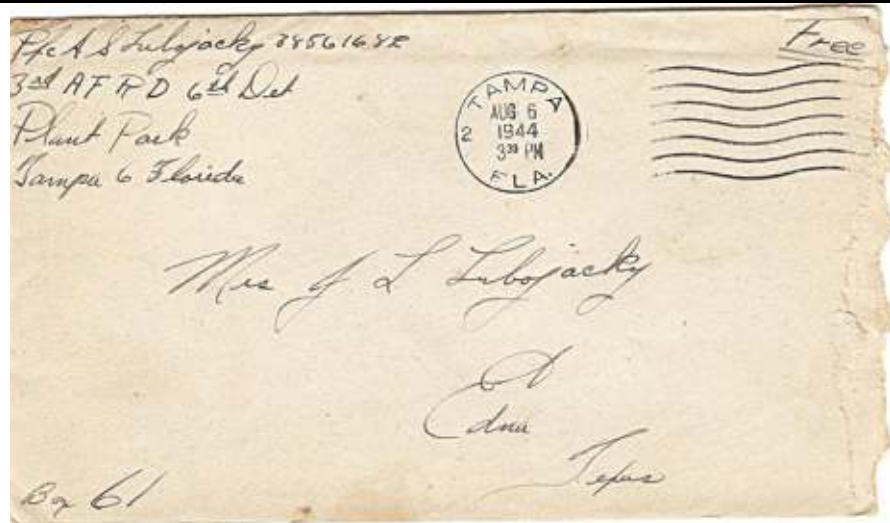 Pfc A S Lubojacky 38561682
3rd AFRD 6th Det
Plant Park
Tampa 6 Florida
Free
TAMPA
AUG 6
1944
3 30 PM
2
FLA.
Mrs J L Lubojacky
Edna
Texas
Box 61